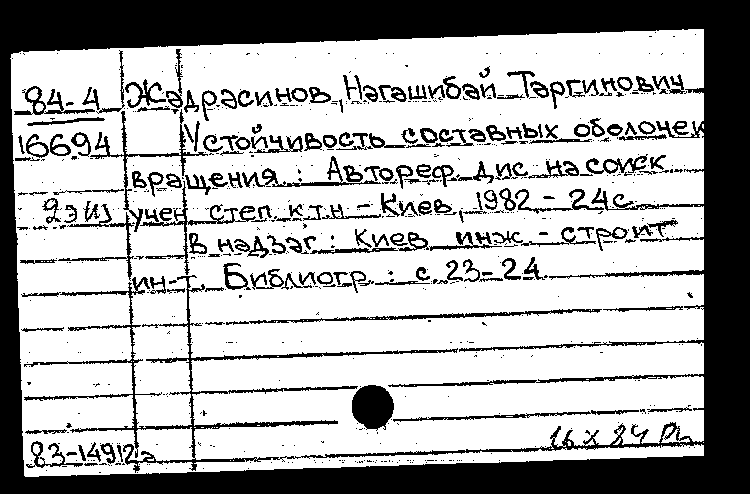 84-4 Жадрасинов, Нагашибай Таргинович
16694 Устойчивость составных оболочек
вращения : Автореф. дис на соиск
2 экз учен степ к.т.н - Киев, 1982 - 24 с
В надзаг : Киев инж - строит
ин-т. Библиогр : с. 23-24
83-14912а